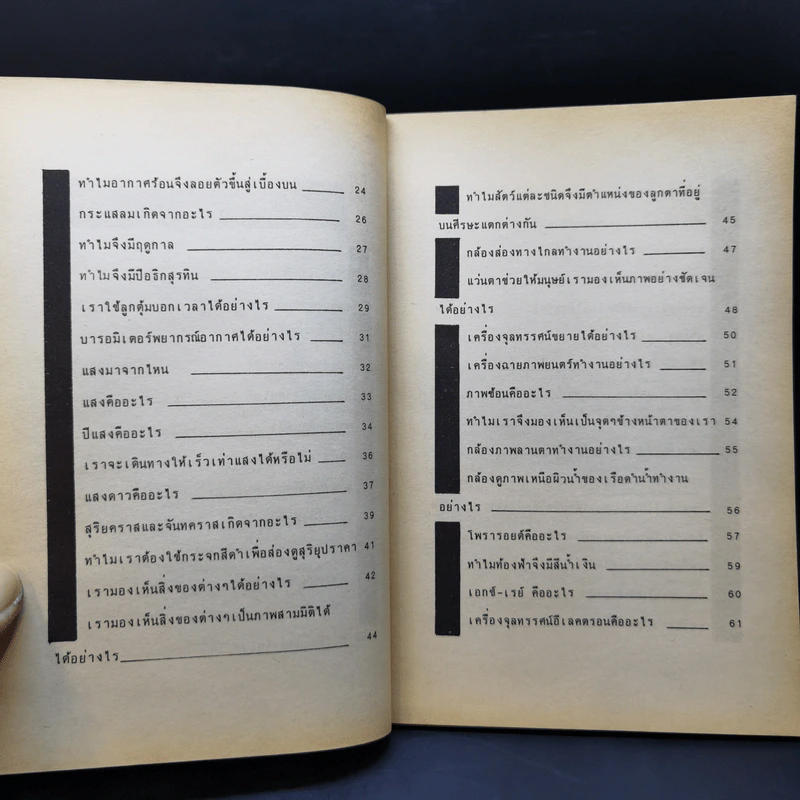 ทำไมอากาศร้อนจึงลอยตัวขึ้นสู่เบื้องบน 24
กระแสลมเกิดจากอะไร 26
ทำไมจึงมีฤดูกาล 27
ทำไมจึงมีปีอธิกสุรทิน 28
เราใช้ลูกตุ้มบอกเวลาได้อย่างไร 29
บารอมิเตอร์พยากรณ์อากาศได้อย่างไร 31
แสงมาจากไหน 32
แสงคืออะไร 33
ปีแสงคืออะไร 34
เราจะเดินทางให้เร็วเท่าแสงได้หรือไม่ 36
แสงดาวคืออะไร 37
สุริยคราสและจันทคราสเกิดจากอะไร 39
ทำไมเราต้องใช้กระจกสีดำเพื่อส่องดูสุริยุปราคา 41
เรามองเห็นสิ่งของต่างๆได้อย่างไร 42
เรามองเห็นสิ่งของต่างๆเป็นภาพสามมิติได้
ได้อย่างไร 44
ทำไมสัตว์แต่ละชนิดจึงมีตำแหน่งของลูกตาที่อยู่
บนศีรษะแตกต่างกัน 45
กล้องส่องทางไกลทำงานอย่างไร 47
แว่นตาช่วยให้มนุษย์เรามองเห็นภาพอย่างชัดเจน
ได้อย่างไร 48
เครื่องจุลทรรศน์ขยายได้อย่างไร 50
เครื่องฉายภาพยนตร์ทำงานอย่างไร 51
ภาพซ้อนคืออะไร 52
ทำไมเราจึงมองเห็นเป็นจุดๆข้างหน้าตาของเรา 54
กล้องภาพลานตาทำงานอย่างไร 55
กล้องดูภาพเหนือผิวน้ำของเรือดำน้ำทำงาน
อย่างไร 56
โพรารอยด์คืออะไร 57
ทำไมท้องฟ้าจึงมีสีน้ำเงิน 59
เอกซ์-เรย์ คืออะไร 60
เครื่องจุลทรรศน์อีเลคตรอนคืออะไร 61